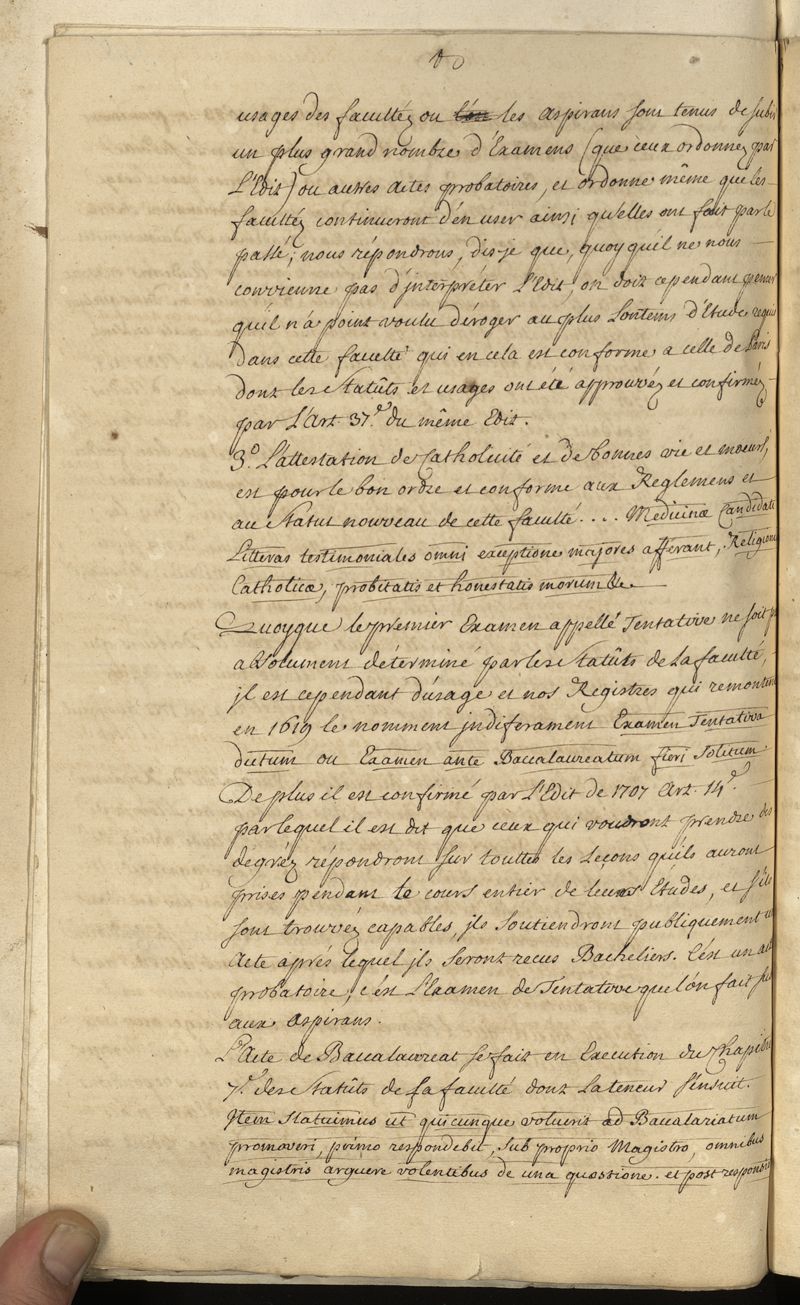 usages des facultéz ou les aspirans sont tenus de subir
un plus grand nombre d'Examens (que ceux ordonnez par
L'Edit) ou autres actes probatoires, et ordonne même que les
facultéz continueront d'én user ainsi qu'elles ont fait par le
passé; nous répondrons, dis-je que, quoy qu'il ne nous
convienne pas d'jnterpréter L'Edit, on doit cependant penser
qu'il n'a point voulu déroger au plus Lontems d'Etude requis
Dans cette faculté qui en cela est conforme a celle de Paris
dont les Statûts et usages ont été approuvéz et confirméz
par L'Art. 37.e du même Edit.
3.o L'attestation de Catholicité et de bonnes vie et moeurs,
est pour le bon ordre et conforme aux Reglemens et
au Statut nouveau de cette faculté.... Medicinæ Candidati
Litteras testimoniales omni exceptione majores afferant, Religionis
Catholicæ, probitatis et honestatis morum &c.
Quoyque le premier Examen appellé Tentative ne soit p
absolument déterminé par les Statûts de La faculté,
jl est cependant d'úsage et nos Registres qui remontent
en 1619 le nomment jndiferament Examen Tentativa
dictum ou Examen ante Baccalaureatum fieri Solitum
De plus il est confirmé par L'Edit de 1707 Art. 14.e
par lequel il est dit que ceux qui voudront prendre des
dégréz répondront sur touttes les Leçons qu'ils auront
prises pendant le cours entier de leurs Etudes, et s'ils
sont trouvéz capables, jls Soutiendront publiquement un
Acte aprés lequel jls Seront recus Bacheliers. C'ést un acte
probatoire, c'ést L'Examen de Tentative que l'ón fait
aux aspirans.
L'Acte de Baccalaureat se fait en Execution du Chapitre
7.e des Statûts de sa faculté dont La teneur s'ensuit.
Jtem Statuimus ut quicunque voluerit ad Baccalariatum
promoveri, primo respondebit, sub proprio Magistro, omnibus
magistris arguere volentibus de una quæstione. et post